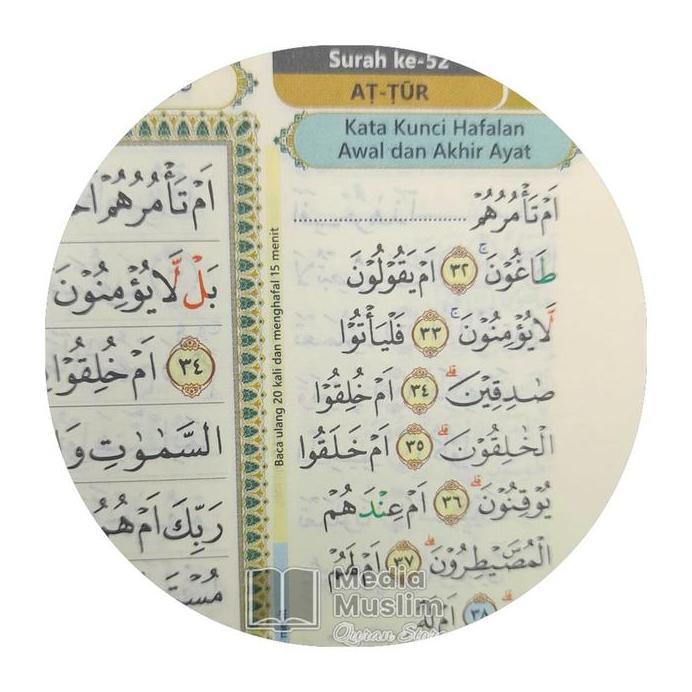 Surah ke-52
AṬ-ṬŪR
Kata Kunci Hafalan
Awal dan Akhir Ayat
اَمْ تَأْمُرُهُمْ ..............................
طَاغُوْنَۚ ٣٢ اَمْ يَقُوْلُوْنَ
لَّا يُؤْمِنُوْنَۚ ٣٣ فَلْيَأْتُوْا
صٰدِقِيْنَۗ ٣٤ اَمْ خُلِقُوْا
الْخٰلِقُوْنَۗ ٣٥ اَمْ خَلَقُوا
يُوْقِنُوْنَۗ ٣٦ اَمْ عِنْدَهُمْ
الْمُصَۣيْطِرُوْنَۗ ٣٧ اَمْ لَهُمْ
٣٨ اَمْ لَهُ
Baca ulang 20 kali dan menghafal 15 menit
اَمْ تَأْمُرُهُمْ
بَلْ لَّا يُؤْمِنُوْنَ
٣٤ اَمْ خُلِقُوْا
السَّمٰوٰتِ وَا
رَبِّكَ اَمْ هُمُ
Media
Muslim
Quran Store